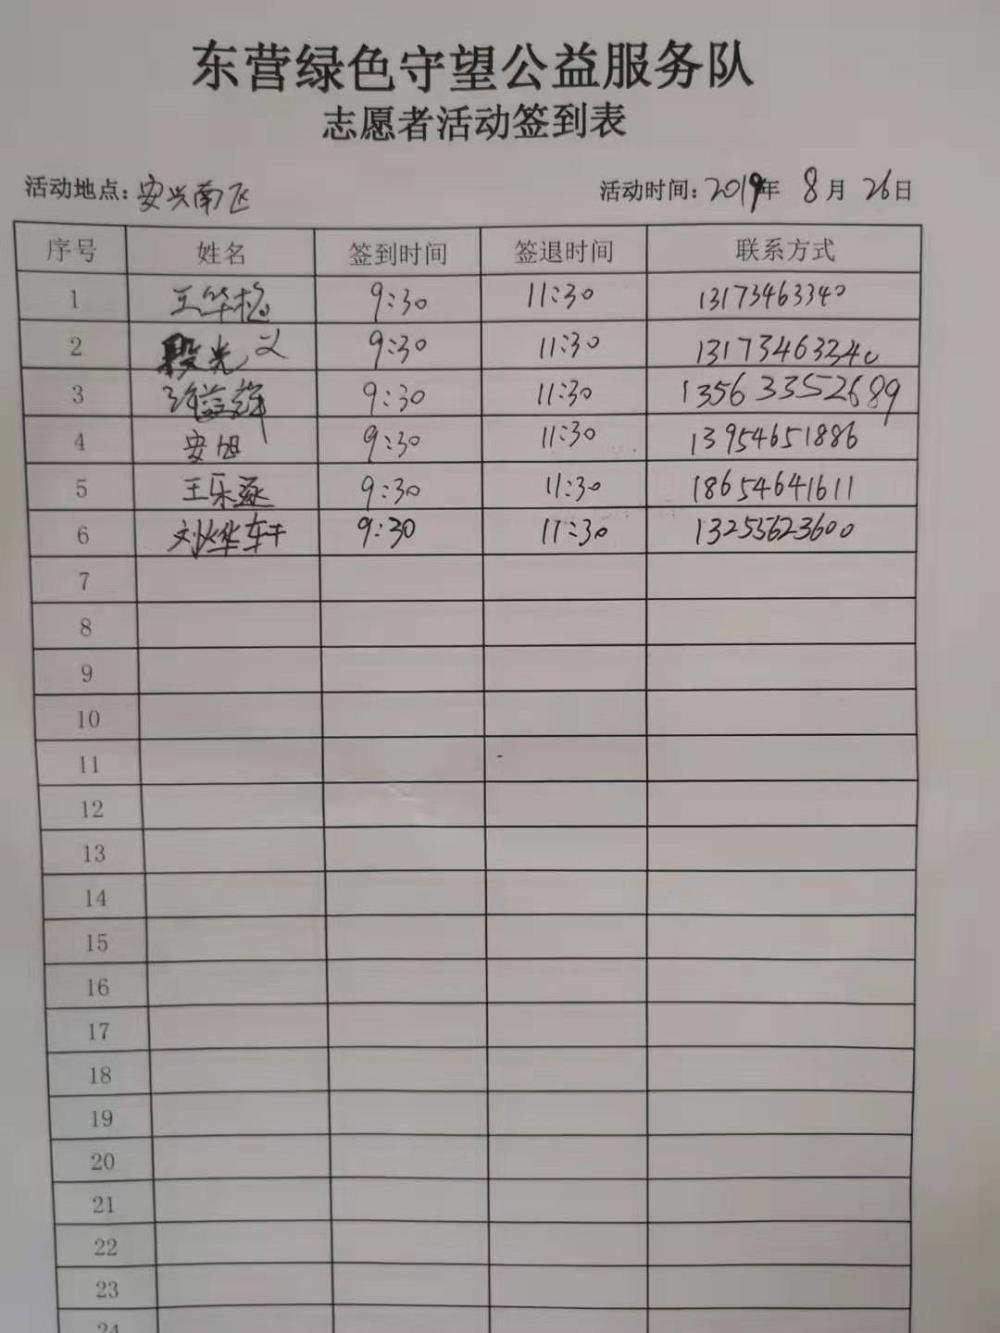 东营绿色守望公益服务队
志愿者活动签到表
活动地点: 安兴南 活动时间: 2019年 8月 26日
序号 姓名 签到时间 签退时间 联系方式
1 王华 9:30 11:30 13173463340
2 段光义 9:30 11:30 13173463340
3 益辉 9:30 11:30 13563352689
4 安旭 9:30 11:30 13954651886
5 王乐 9:30 11:30 18654641611
6 刘烨轩 9:30 11:30 13255623600
7
8
9
10
11
12
13
14
15
16
17
18
19
20
21
22
23
24